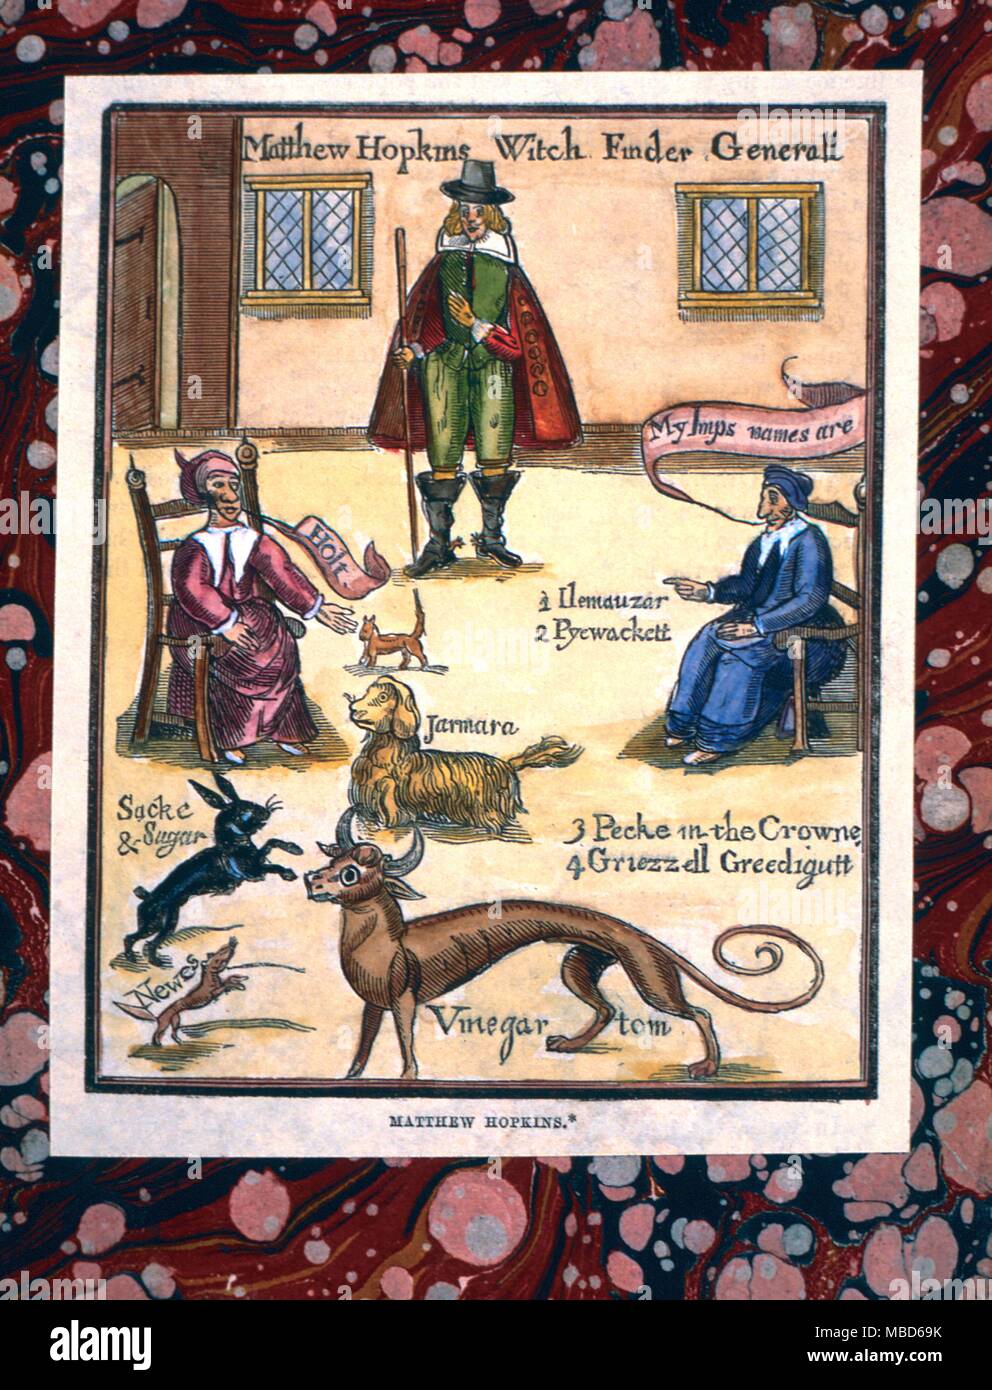 Matthew Hopkins Witch Finder Generall
My Imps names are
Holt
1 Ilemauzar
2 Pyewackett
Jarmara
Sacke
& Sugar
3 Pecke in the Crowne
4 Griezzell Greedigutt
Newes
Vinegar tom
MATTHEW HOPKINS.*
a alamy stock photo
alamy
Image ID: MBD69K
www.alamy.com